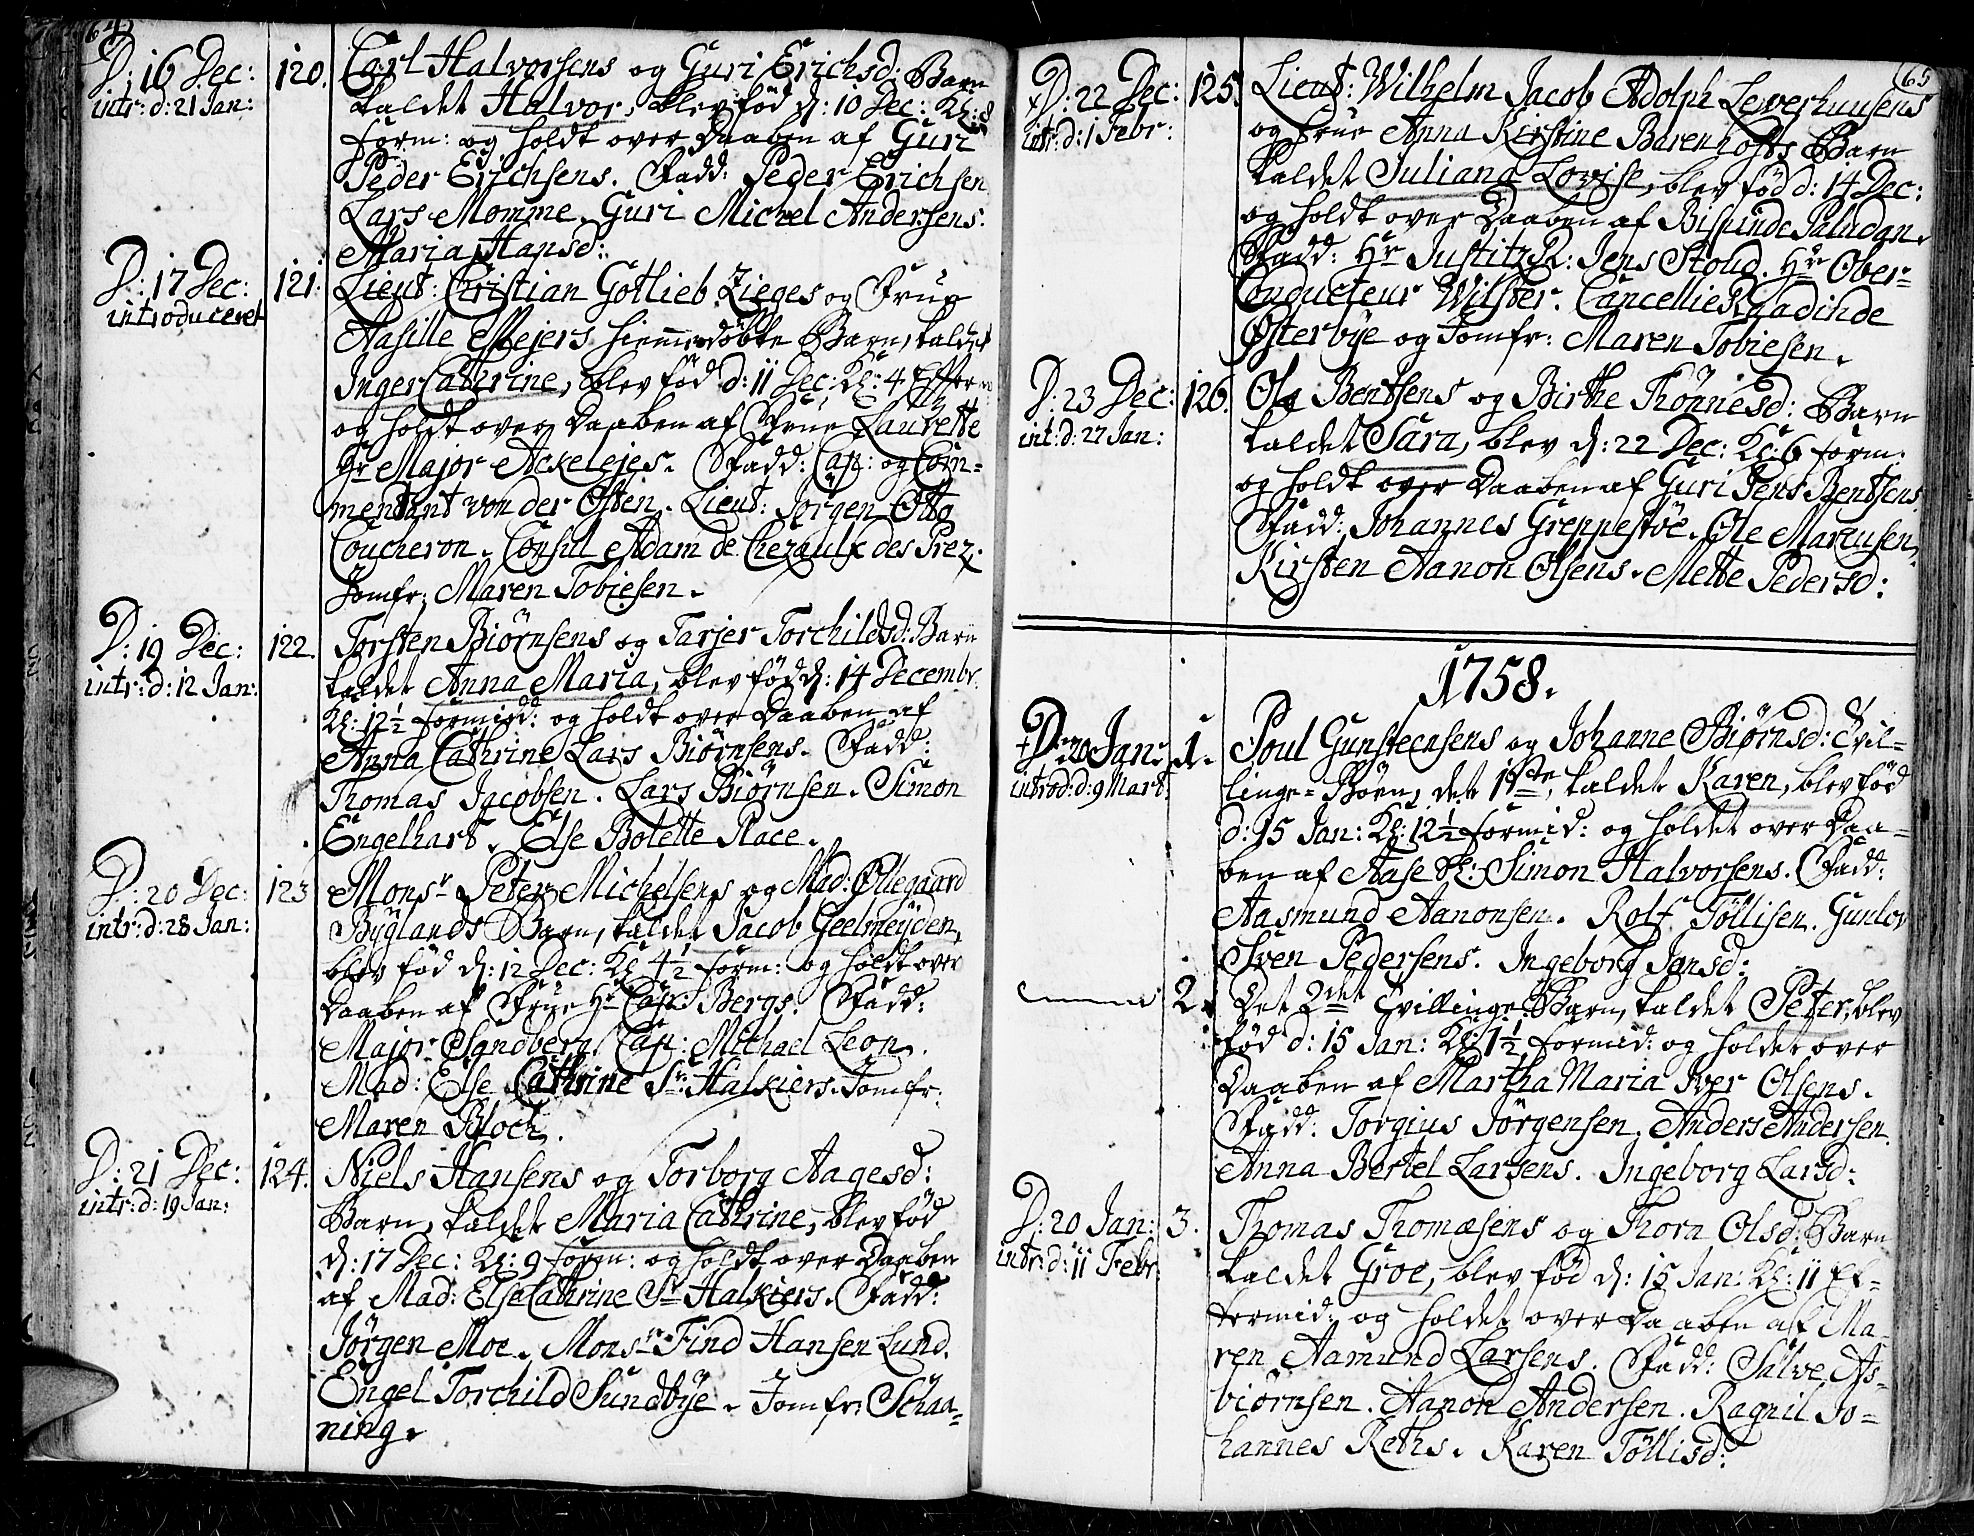 64)
D: 16 Dec: 120. Carl Halvorsens og Guri Erichsd: Barn
intr: d: 21 Jan: kaldet Halvor, blev fød d: 10 Dec: Kl: 8
form: og holdt over Daaben af Guri
Peder Erichsens. Fadd: Peder Erichsen
Lars Momme. Guri Michel Andersens.
Maria Hansd:
D: 17 Dec: 121. Lieut: Christian Gotlieb Zieges og Frue
introduceret Aasille Mejers hiemmedøbte Barn, kaldet
Inger Cathrine, blev fød d: 11 Dec: Kl: 4 Efterm
og holdt over Daaben af Frue Laurette
Hr Major Ackelejes. Fadd: Cap: og Com-
mendant von der Osten. Lieut: Jørgen Otto
Coucheron. Consul Adam de Chezaulx des Prez.
Jomfr: Maren Tobiesen.
D: 19 Dec: 122. Torsten Biørnsens og Tarjer Torchildsd: Barn
intr: d: 12 Jan: kaldet Anna Maria, blev fød d: 14 Decembr.
Kl: 12½ formidd: og holdt over Daaben af
Anna Cathrine Lars Biørnsens. Fadd:
Thomas Jacobsen. Lars Biørnsen. Simon
Engelhart. Else Bolette Place.
D: 20 Dec: 123 Monsr Peter Michelsens og Mad: Øllegaard
intr: d: 28 Jan: Byglands Barn, kaldet Jacob Geelmeyden,
blev fød d: 12 Dec: Kl 4½ form: og holdt over
Daaben af Frue Hr Cap: Bergs. Fadd:
Major Sandberg. Cap: Michael Leon.
Mad: Else Cathrine Sr Halkiers. Jomfr:
Maren Bloch.
D: 21 Dec: 124. Niels Hansens og Torborg Aagesd:
intr: d: 19 Jan: Barn, kaldet Maria Cathrine, blev fød
d: 17 Dec: Kl: 9 form: og holdt over Daaben
af Mad: Else Cathrine Sr Halkiers. Fadd:
Jørgen Moe. Monsr Find Hansen Lund.
Engel Torchild Sundbye. Jomfr: Schaa-
ning.
(65
D: 22 Dec: 125. Lieut: Wilhelm Jacob Adolph Lewerhunsens
intr: d: 1 Febr: og Frue Anna Kirstine Barenhofts Barn
kaldet Juliana Lovise, blev fød d: 14 Dec:
og holdt over Daaben af Bispinde Paludan.
Fadd: Hr JustitzR: Jens Stoud. Hr Ober-
Conducteur Wilster. CancellieRaadinde
Østerbye og Jomfr: Maren Tobiesen.
D: 23 Dec: 126. Ole Bentsens og Birthe Thønnesd: Barn
int: d: 27 Jan: kaldet Sara, blev d: 22 Dec: Kl: 6 form:
og holdt over Daaben af Guri Jens Bentsens
Fadd: Johannes Greppestøe. Ole Marcusen.
Kirsten Aanon Olsens. Mette Pedersd:
1758.
+D: 20 Jan: 1. Poul Gunstensens og Johanne Biørnsd: Tvil-
introd: d: 9 Mart: linge-Børn, det 1ste, kaldet Karen, blev fød
d: 15 Jan: Kl: 12½ formid: og holdet over Daa-
ben af Aase Simon Halvorsens. Fadd:
Aasmund Aanonsen. Rolf Tøllisen. Gunlov
Sven Pedersens. Ingeborg Jansd:
2. Det 2det Tvillinge-Barn, kaldet Peter, blev
fød d: 15 Jan: Kl: 1½ formid: og holdet over
Daaben af Martha Maria Iver Olsens.
Fadd: Torgius Jørgensen. Anders Andersen.
Anna Bertel Larsens. Ingeborg Larsd:
D: 20 Jan: 3. Thomas Thomæsens og Thora Olsd: Barn
intr: d: 11 Febr: kaldet Groe, blev fød d: 15 Jan: Kl: 11 Ef-
termid: og holdet over Daaben af Ma-
ren Aamund Larsens. Fadd: Salve As-
biørnsen. Aanon Andersen. Ragnil Jo-
hannes Reths. Karen Tøllisd: